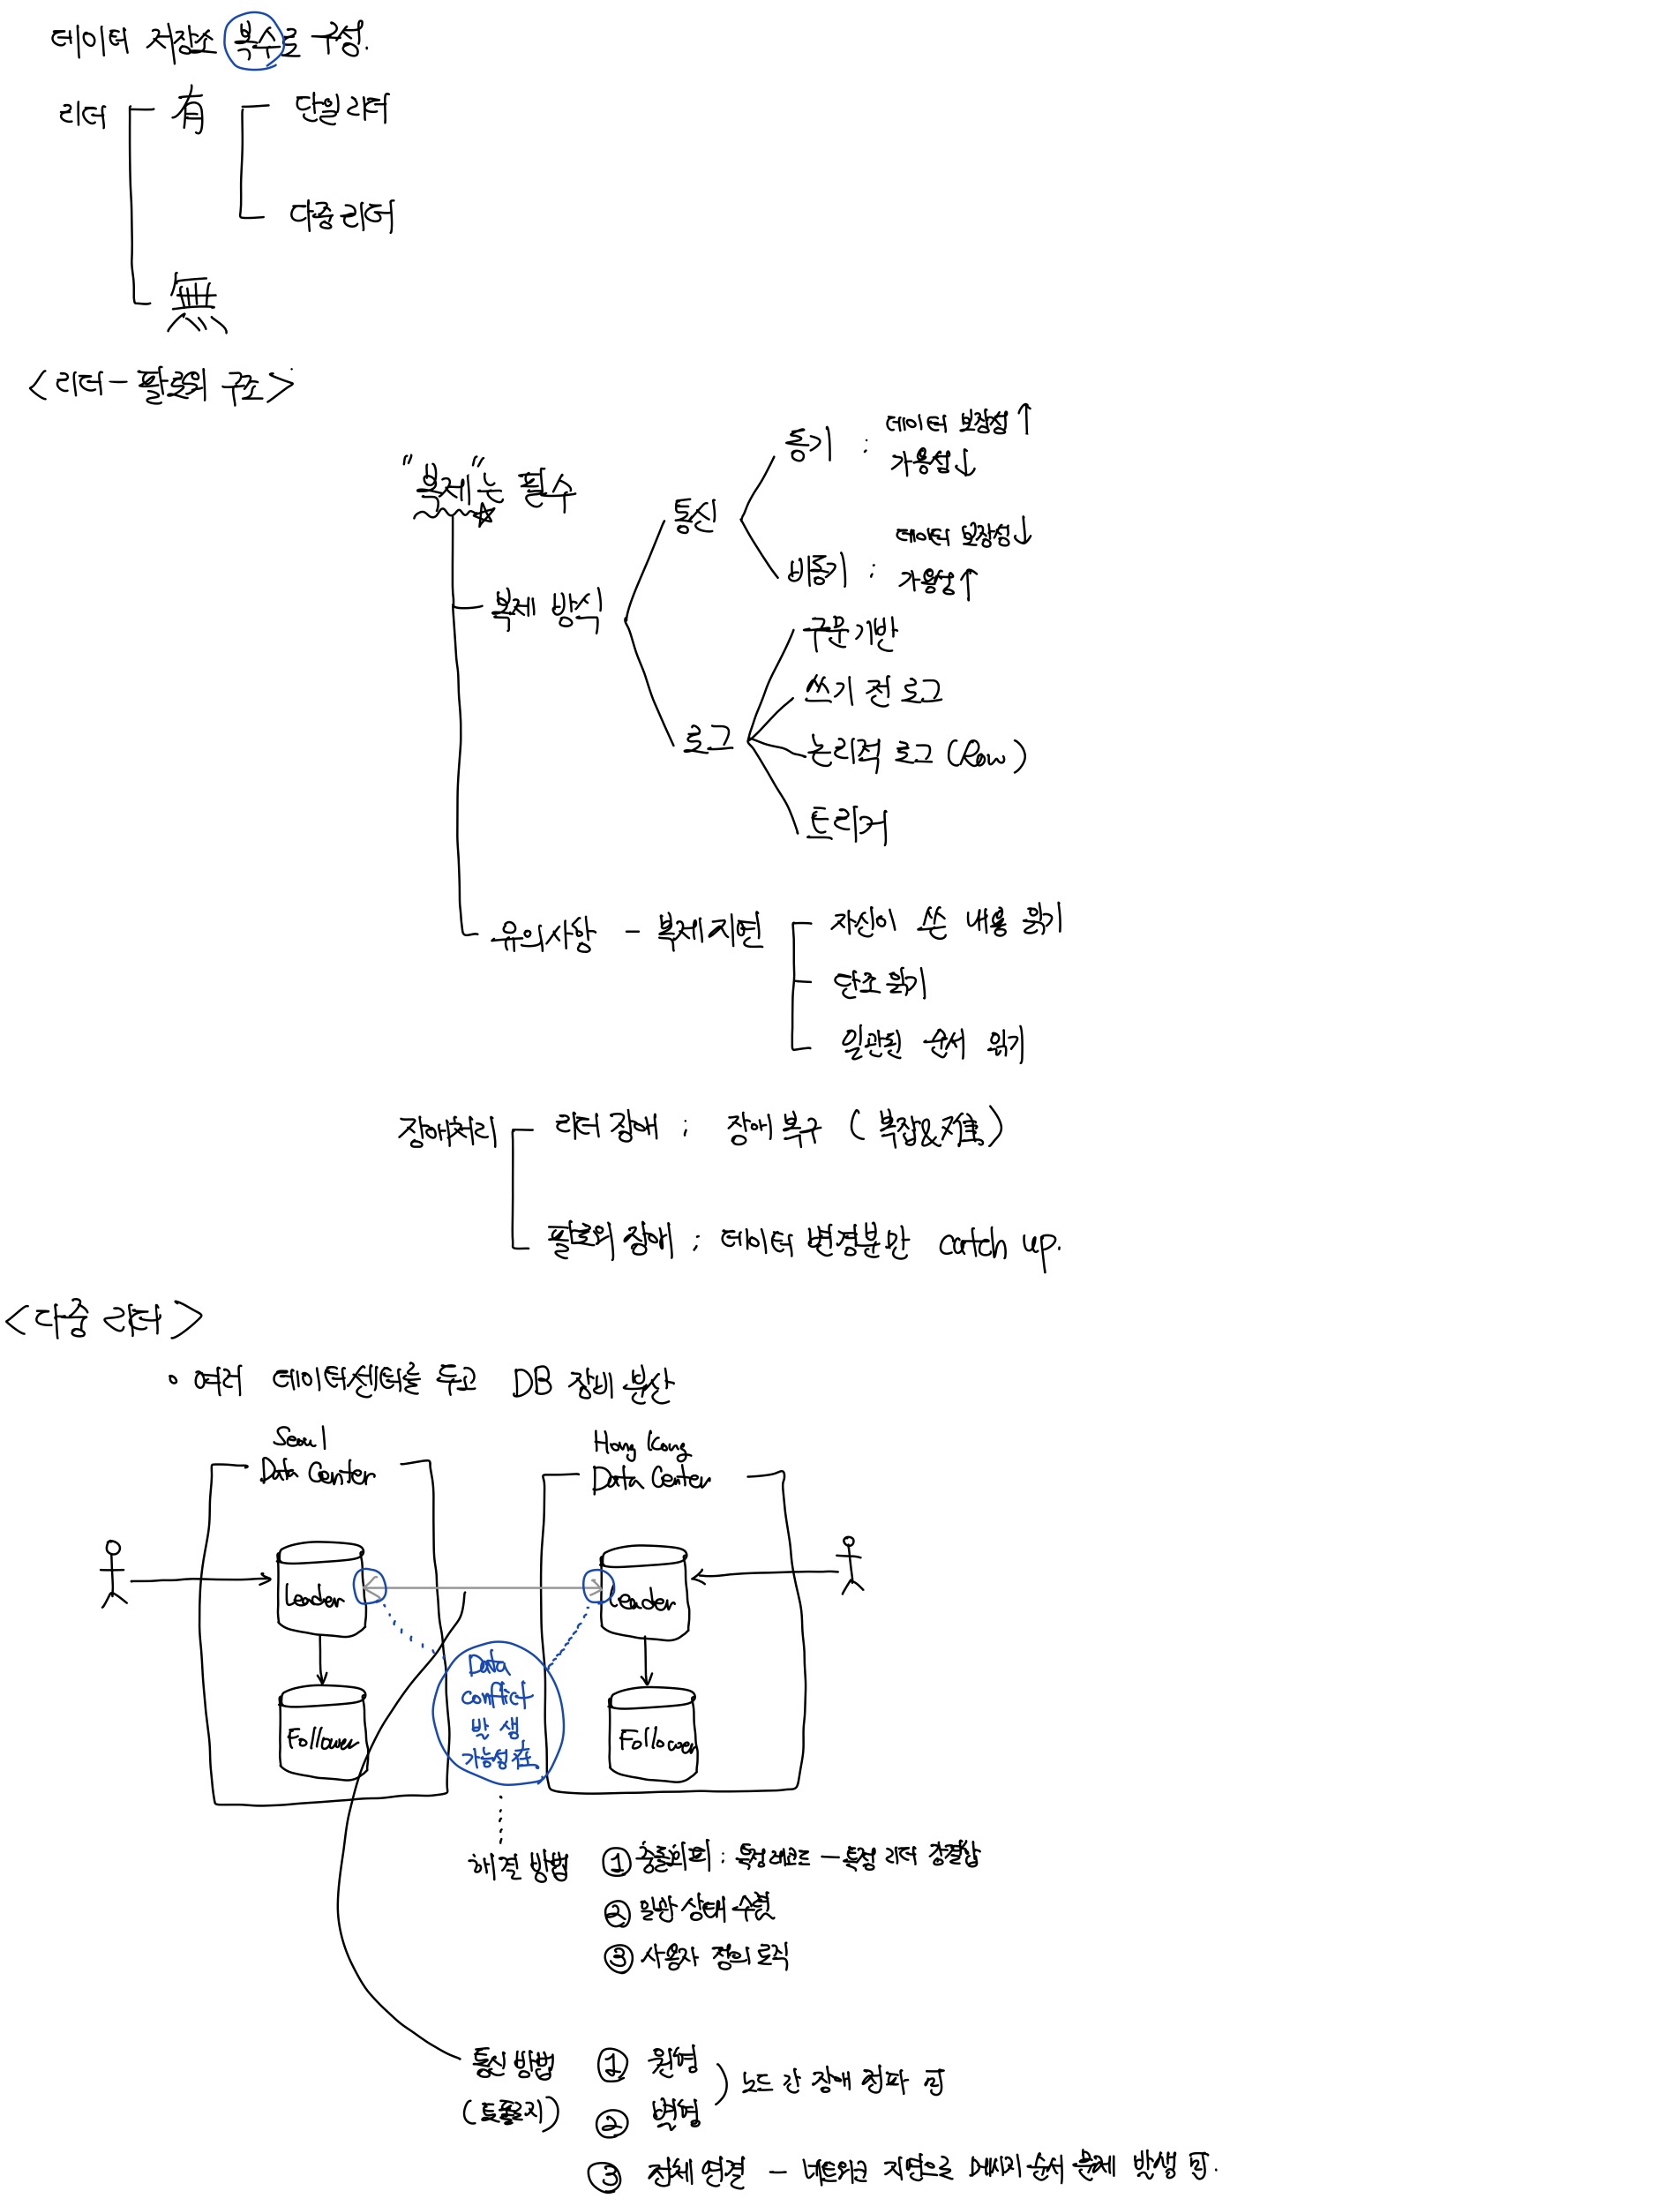 데이터 저장소 복수로 구성.
리더 有 단일리더
다중리더
無
<리더-팔로워 구조>
"복제"는 필수
복제 방식
통신
동기 : 데이터 보장성↑
가용성↓
비동기 : 데이터 보장성↓
가용성↑
로그
구문기반
쓰기 전 로그
논리적 로그 (Row)
트리거
유의사항 - 복제지연
자신이 쓴 내용 읽기
단조읽기
일관된 순서 읽기
장애처리
리더 장애 ; 장애복구 (복잡&難)
팔로워 장애 ; 데이터 변경분만 catch up.
<다중 리더>
◦ 여러 데이터센터를 두고 DB 장비 분산
Seoul
Data Center
Hong Kong
Data Center
Leader
Leader
Follower
Follower
Data
conflict
발생
가능성 在.
해결 방법
① 충돌회피 : 특정레코드 - 특정 리더 강결합
② 일관 상태 수렴
③ 사용자 정의 로직
통신 방법
(토폴로지)
① 원형
② 별형
노드 간 장애 전파 可
③ 전체 연결 - 네트워크 지연으로 메시지 순서 문제 발생 可.